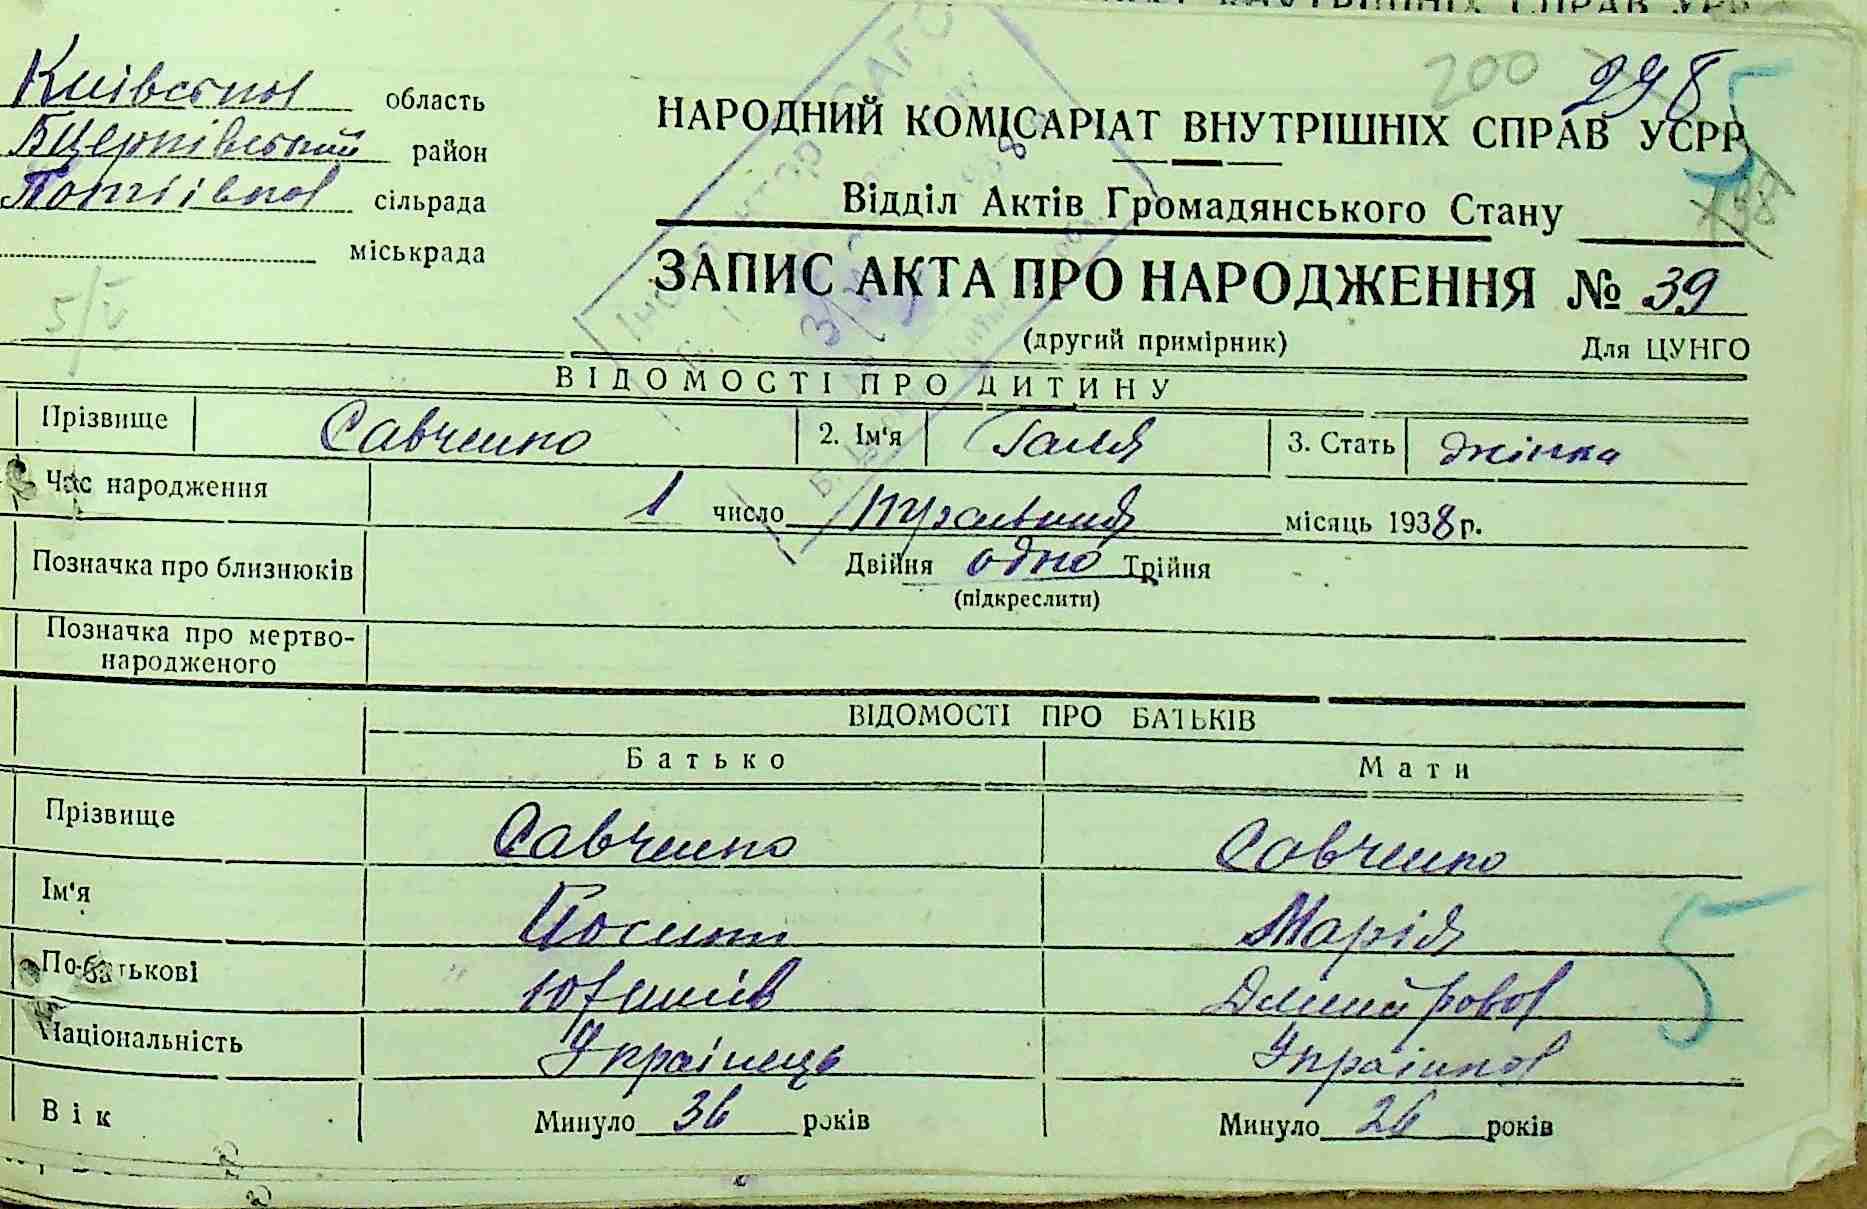 Київська область
Бцерківський район
Потіївка сільрада
міськрада
200 298
НАРОДНИЙ КОМІСАРІАТ ВНУТРІШНІХ СПРАВ УСРР
Відділ Актів Громадянського Стану
198
ЗАПИС АКТА ПРО НАРОДЖЕННЯ № 39
5/V
(другий примірник) Для ЦУНГО
ВІДОМОСТІ ПРО ДИТИНУ
Прізвище Савченко 2. Ім'я Галя 3. Стать жінка
Час народження 1 число травня місяць 1938 р.
Позначка про близнюків Двійня одно Трійня
(підкреслити)
Позначка про мертво-
народженого
ВІДОМОСТІ ПРО БАТЬКІВ
Батько Мати
Прізвище Савченко Савченко
Ім'я Йосип Марія
5
По-батькові Дмитрова
Національність Українець Українка
Вік Минуло 36 років Минуло 26 років